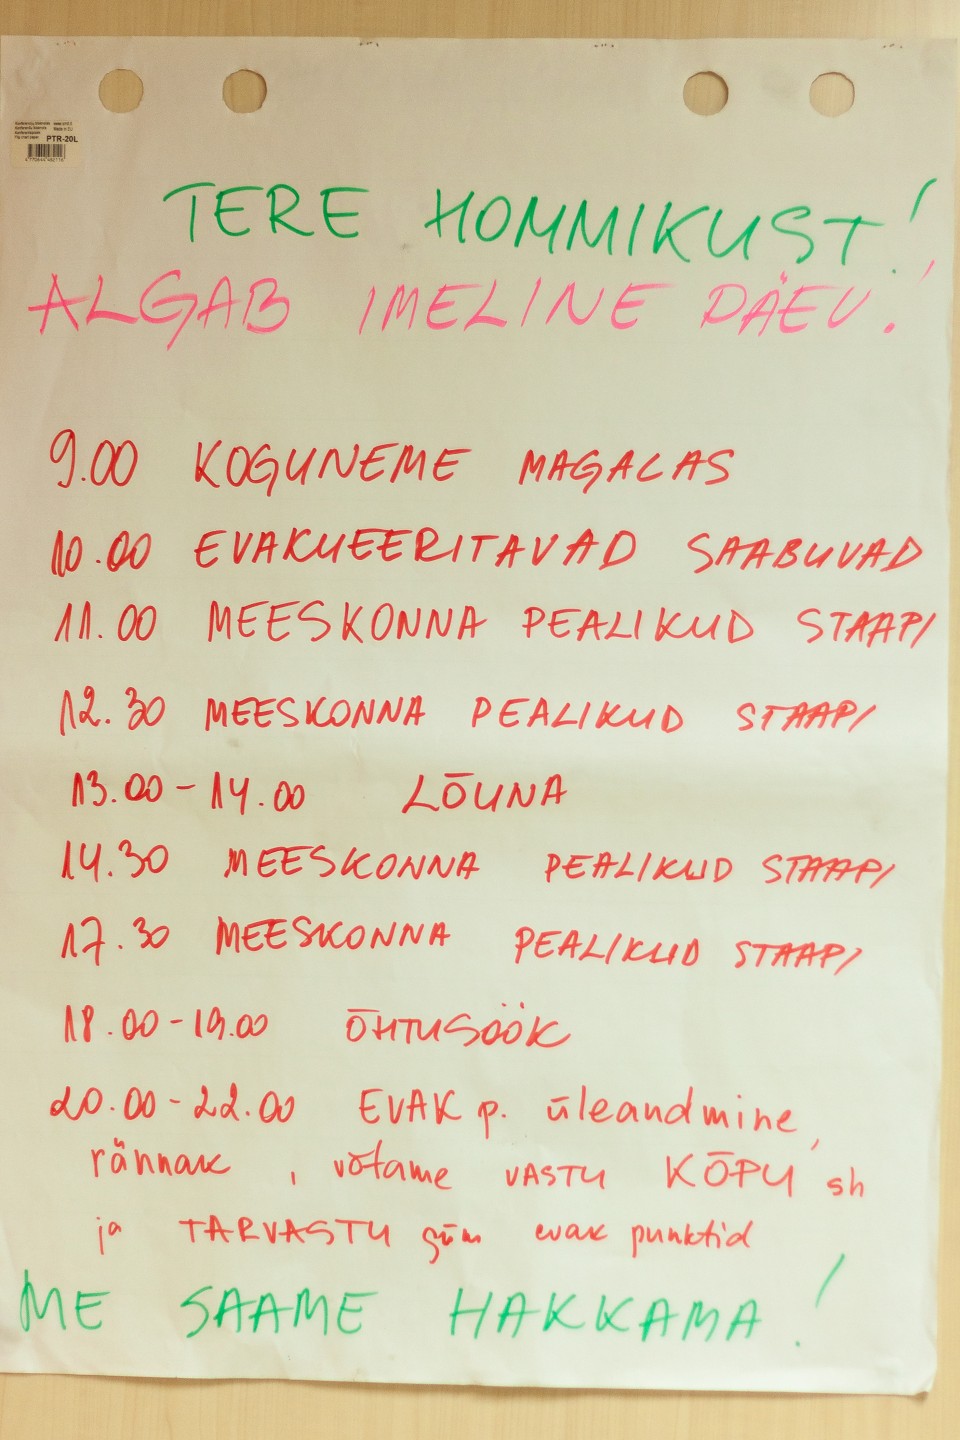 PTR-20L
TERE HOMMIKUST!
ALGAB IMELINE PÄEV!
9.00 KOGUNEME MAGALAS
10.00 EVAKUEERITAVAD SAABUVAD
11.00 MEESKONNA PEALIKUD STAAPI
12.30 MEESKONNA PEALIKUD STAAPI
13.00-14.00 LÕUNA
14.30 MEESKONNA PEALIKUD STAAPI
17.30 MEESKONNA PEALIKUD STAAPI
18.00-19.00 ÕHTUSÖÖK
20.00-22.00 EVAK p. üleandmine,
rännak, võtame VASTU KÕPU sh
ja TARVASTU güm evak punktid
ME SAAME HAKKAMA!